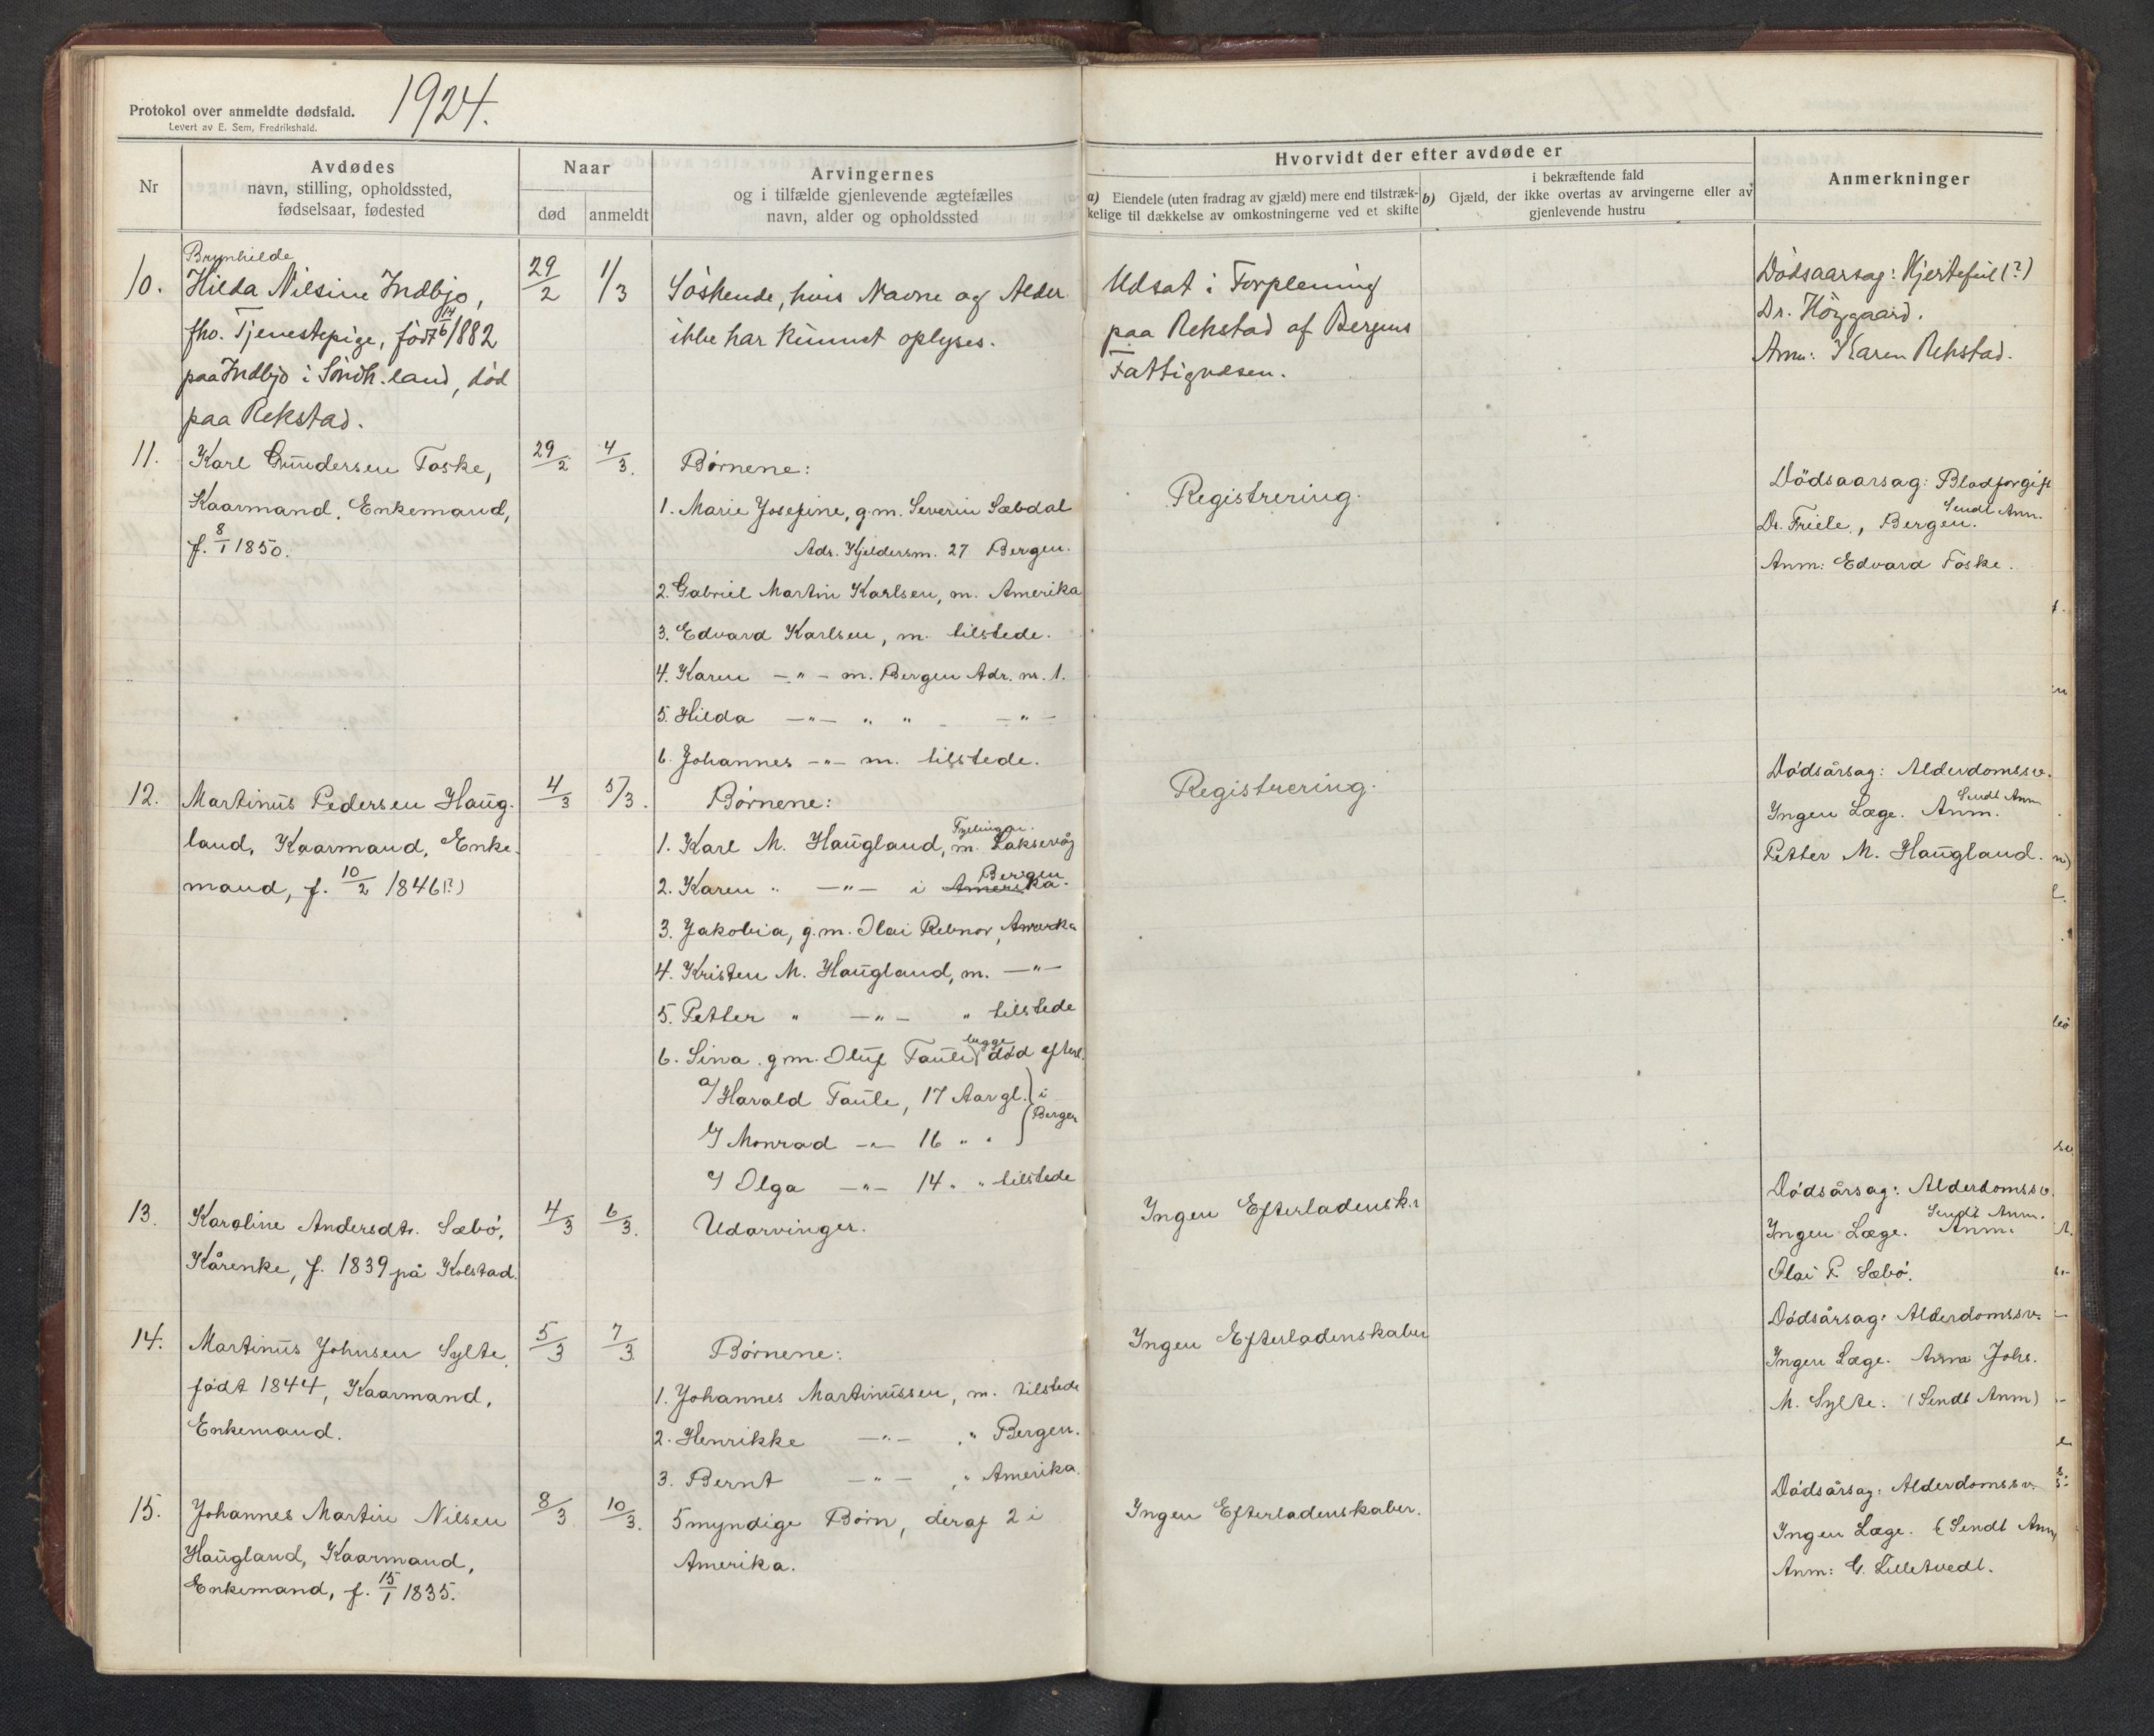 Protokol over anmeldte dødsfald.
Levert av E. Sem, Fredrikshald.
1924.
Nr
Avdødes
navn, stilling, opholdssted,
fødselsaar, fødested
Naar
død
anmeldt
Arvingernes
og i tilfælde gjenlevende ægtefælles
navn, alder og opholdssted
Hvorvidt der efter avdøde er
a) Eiendele (uten fradrag av gjæld) mere end tilstræk-
kelige til dækkelse av omkostningerne ved et skifte
i bekræftende fald
b) Gjæld, der ikke overtas av arvingerne eller av
gjenlevende hustru
Anmerkninger
10.
Brynhilde
Hilda Nilsine Indbjo,
fho. Tjenestepige, født 14/6 1882
paa Indbjo i Söndh.land, död
paa Rekstad.
29/2
1/3
Söskende, hvis Navne og Alder
ikke har kunnet oplyses.
Udsat i Forpleining
paa Rekstad af Bergens
Fattigvæsen.
Dödsaarsag: Hjertefeil (?)
Dr. Höygaard.
Anm: Karen Rekstad.
11.
Karl Gundersen Foske,
Kaarmand, Enkemand,
f. 8/1 1850.
29/2
4/3.
Börnene:
1. Marie Josefine, g.m. Severin Sæbdal
Adr. Kjeldersm. 27 Bergen.
2. Gabriel Martin Karlsen, m. Amerika
3. Edvard Karlsen, m. tilstede.
4. Karen -"- m. Bergen Adr. nr. 1.
5. Hilda -"- " " -"-
6. Johannes -"- m. tilstede.
Registrering.
Dödsaarsag: Blodforgift
Sendt Anm.
Dr. Friele, Bergen.
Anm: Edvard Foske.
12.
Martinus Pedersen Haug-
land, Kaarmand, Enke-
mand, f. 10/2 1846(?)
4/3
5/3.
Börnene:
1. Karl M. Haugland, m. Laksevåg
Bergen
2. Karen " -"- i Amerika.
3. Jakobia, g.m. Olai Rebnor, Amerka
4. Kristen M. Haugland, m. -"-
5. Petter " -"- " tilstede
begge
6. Sina g.m. Oluf Taule död efterl.
a/ Harald Taule, 17 Aar gl. } i
b/ Monrad -"- 16 " " } Bergen
c/ Olga -"- 14 " " tilstede
Registrering.
Dödsårsag: Alderdomssv.
Sendt Anm
Ingen Læge. Anm.
Petter M. Haugland.
13.
Karoline Andersdtr. Sæbö,
Kårenke, f. 1839 på Kolstad.
4/3
6/3.
Udarvinger.
Ingen Efterladensk.r
Dödsårsag: Alderdomssv.
Sendt Anm.
Ingen Læge. Anm.
Olai P. Sæbö.
14.
Martinus Johnsen Sylte,
födt 1844, Kaarmand,
Enkemand.
5/3
7/3
Börnene:
1. Johannes Martinussen, m. tilstede
2. Henrikke -"- " Bergen.
3. Bernt -"- " Amerika.
Ingen Efterladenskaber
Dödsårsag: Alderdomssv.
Ingen Læge. Anm Johs.
M. Sylte. (Sendt Anm)
15.
Johannes Martin Nilsen
Haugland, Kaarmand,
Enkemand, f. 15/1 1835.
8/3
10/3.
5 myndige Börn, deraf 2 i
Amerika.
Ingen Efterladenskaber.
Dödsårsag: Alderdomssv.
Ingen Læge. (Sendt Anm
Anm: G. Lilletvedt.